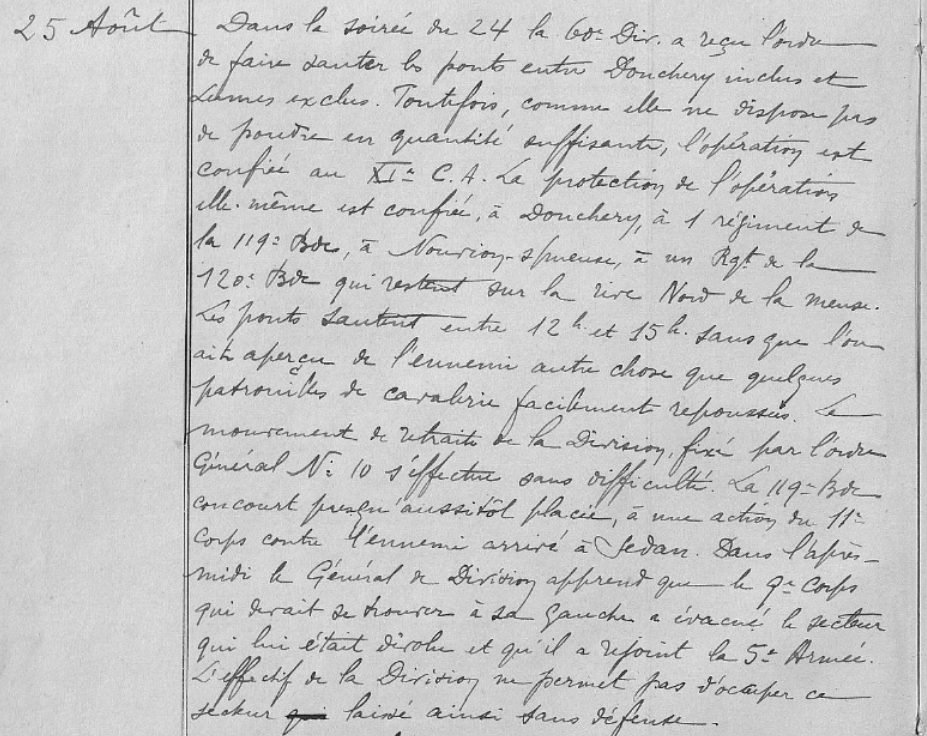 25 Août Dans la soirée du 24 la 60e Div. a reçu l'ordre
de faire sauter les ponts entre Donchery inclus et
Lumes exclus. Toutefois, comme elle ne dispose pas
de poudre en quantité suffisante, l'opération est
confiée au XIe C.A. La protection de l'opération
elle-même est confiée, à Donchery, à 1 régiment de
la 119e Bde, à Nouvion, à un Rgt de la
120e Bde qui restent sur la rive Nord de la meuse.
Les ponts sautent entre 12h et 15h. sans que l'on
ait aperçu de l'ennemi autre chose que quelques
patrouilles de cavalerie facilement repoussées. Le
mouvement de retraite de la Division, fixé par l'ordre
Général No 10 s'effectue sans difficulté. La 119e Bde
concourt presqu'aussitôt placée, à une action du 11e
Corps contre l'ennemi arrivé à Sedan. Dans l'après-
midi le Général de Division apprend que le 9e Corps
qui devait se trouver à sa Gauche a évacué le secteur
qui lui était dévolu et qu'il a rejoint la 5e Armée.
L'effectif de la Division ne permet pas d'occuper ce
secteur qui laissé ainsi sans défense.